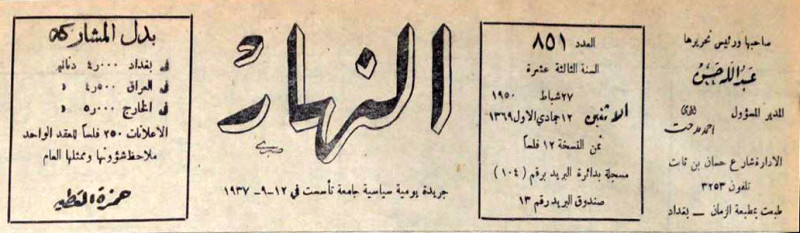 صاحبها ورئيس تحريرها
عبدالله حسن
المدير المسؤول
احمد مدحت
الادارة شارع حسان بن ثابت
تلفون ٣٢٥٣
طبعت بمطبعة الزمان — بغداد
العدد ٨٥١
السنة الثالثة عشرة
٢٧ شباط ١٩٥٠
الاثنين ١٢ جمادي الاول ١٣٦٩
ثمن النسخة ١٢ فلساً
مسجلة بدائرة البريد برقم (١٠٤)
صندوق البريد رقم ١٣
النهار
جريدة يومية سياسية جامعة تأسست في ١٢-٩-١٩٣٧
بدل المشاركة
في بغداد ٤٫٠٠٠ دنانير
في العراق ٤٫٥٠٠ «
في الخارج ٥٫٠٠٠ «
الاعلانات ٢٥٠ فلساً للعقد الواحد
ملاحظ شؤونها وممثلها العام
حمزة العطية